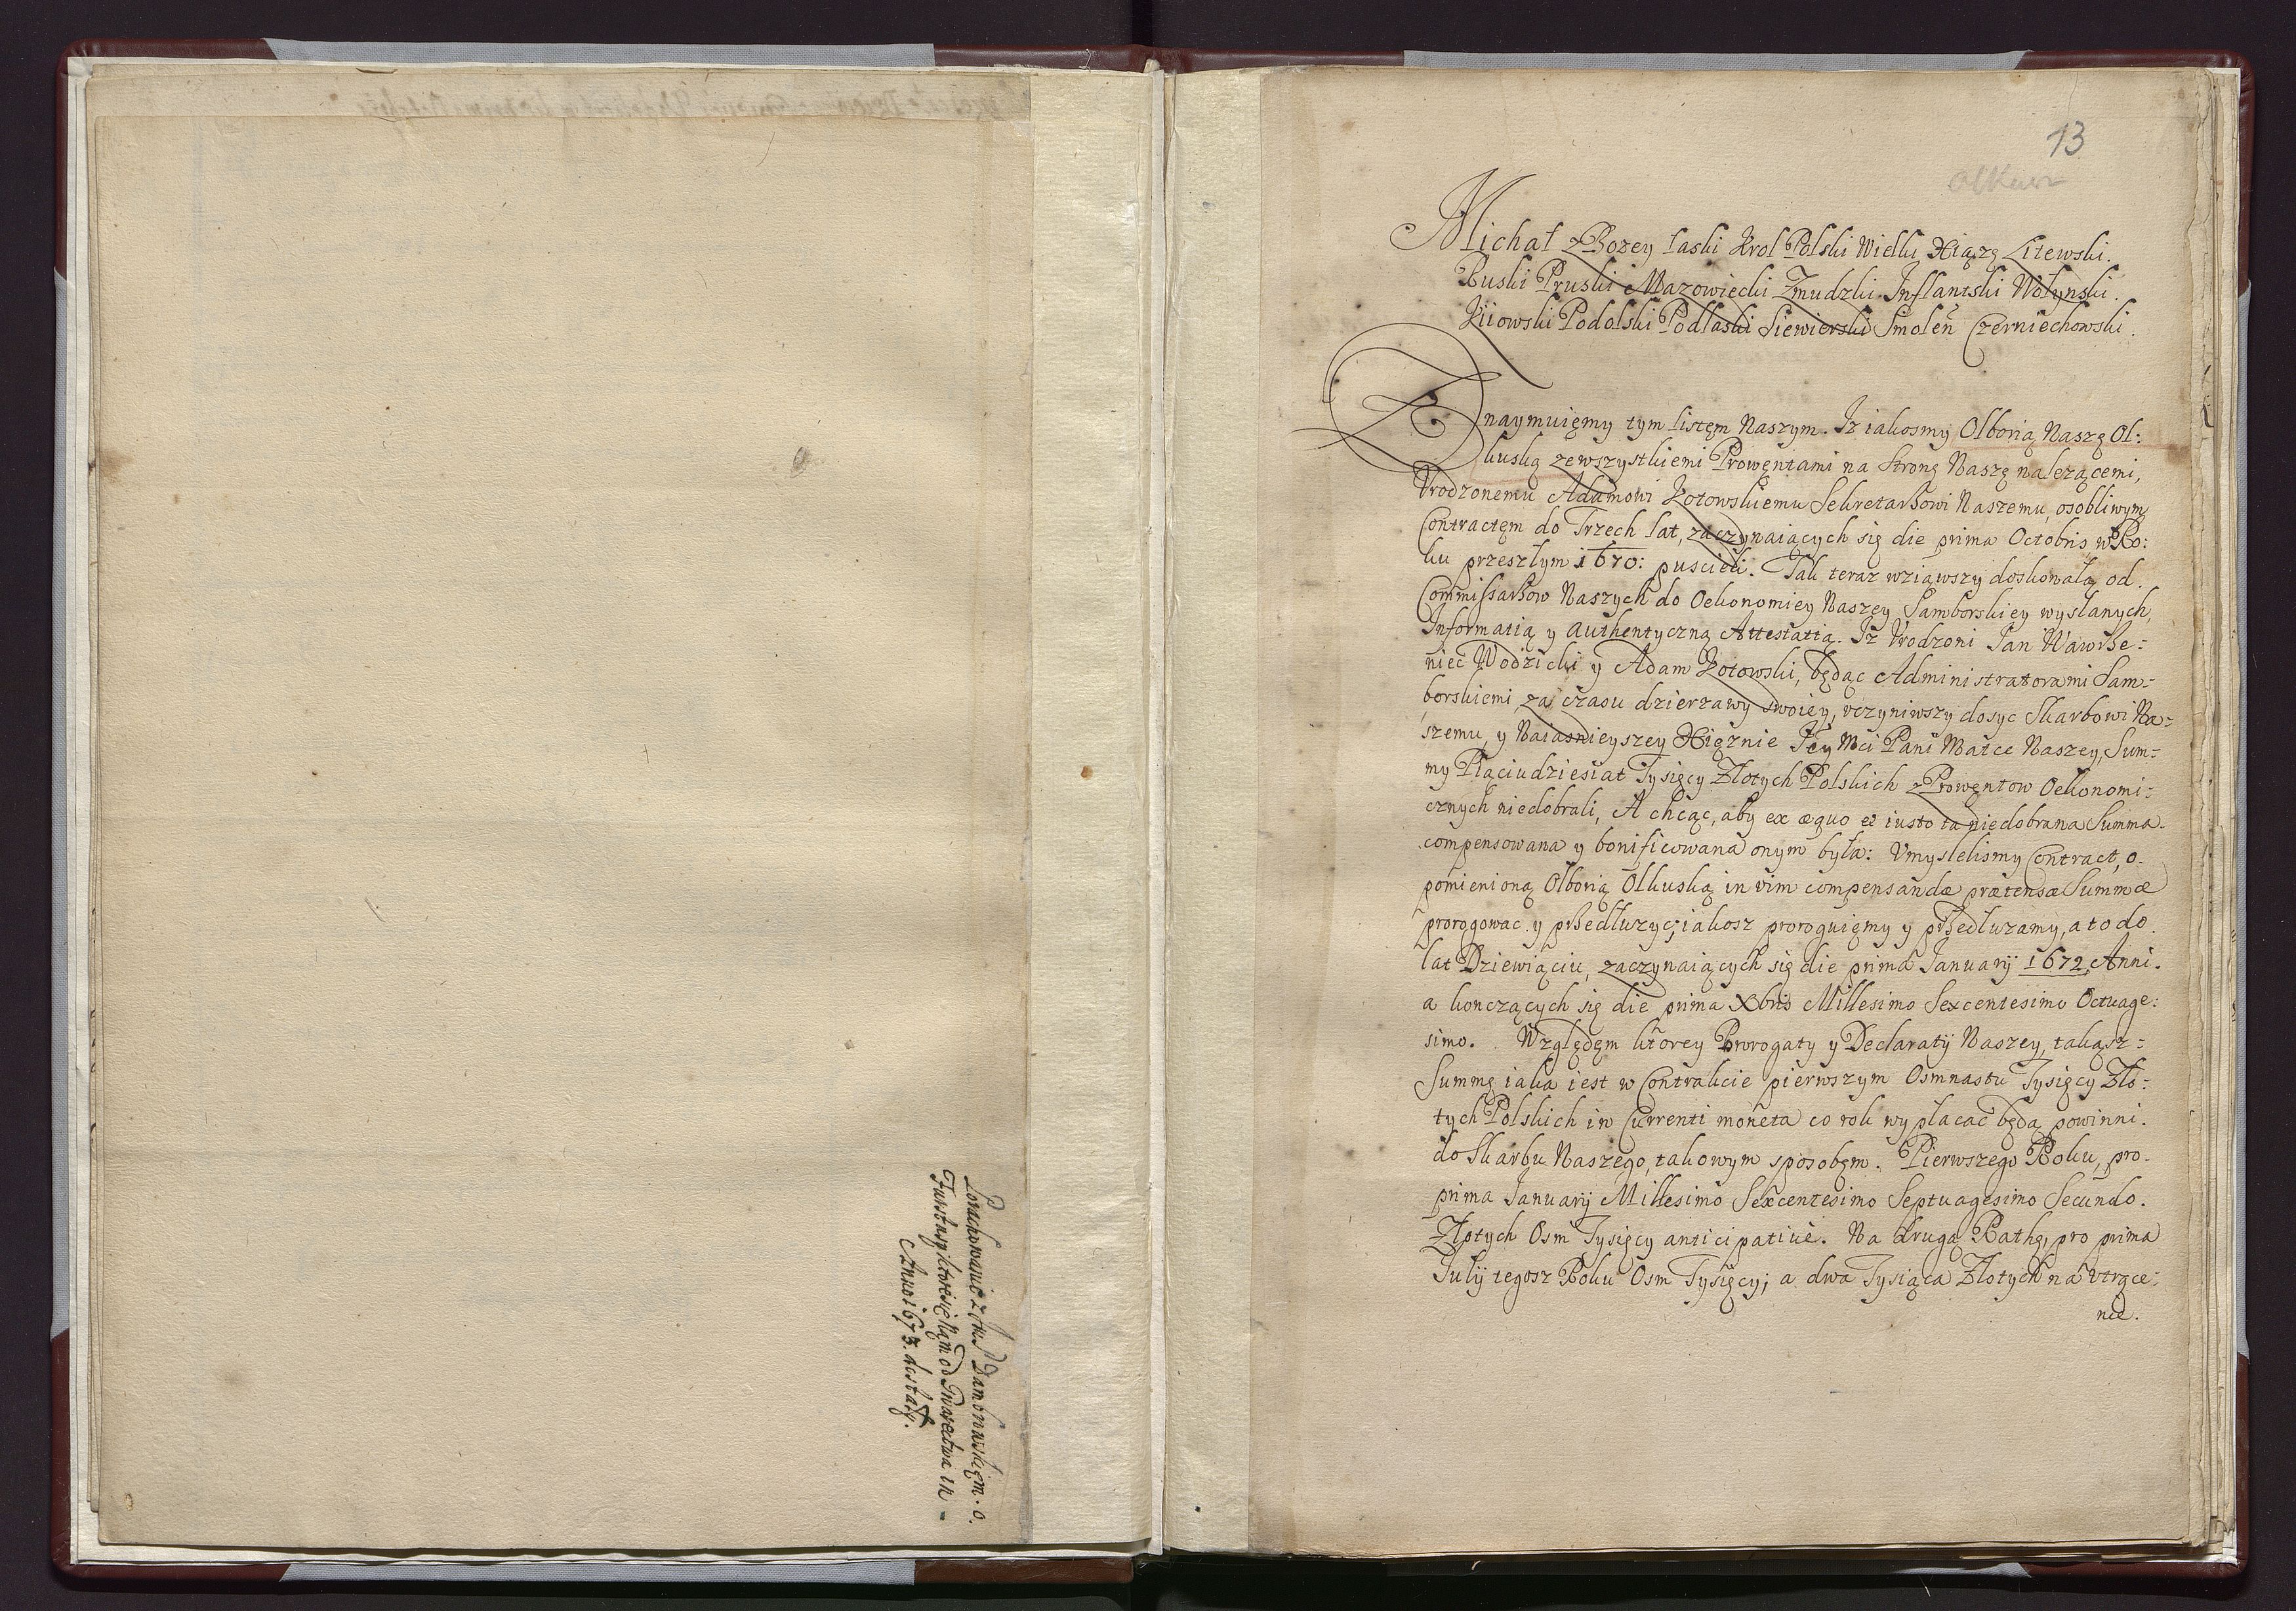 Porachowanie z Jmsc Dambrowskiem. o.
Anno 1673. dostały.
13
Olkusz
Michał z Bozey łaski Krol Polski Wielki Xiązę Litewski.
Ruski Pruski Mazowiecki Zmudzki Inflantski Wołynski.
Kiiowski Podolski Podlaski Siewierski Smoleń Czerniechowski.
Znaymuięmy tym listęm Naszym. Iz iakosmy Olborią Naszę Ol:
kuską zewszystkiemi Prowęntami na stronę Naszę nalezącemi,
Vrodzonemu Adamowi Kotowskiemu Sekretarzowi Naszemu, osobliwym
Contractęm do Trzech lat, zaczynaiących się die prima Octobris w Ro:
ku przeszłym 1670: puscieli. Tak teraz wziąwszy doskonałą od.
Commissarzow Naszych do Oekonomiey Naszey Samborskiey wysłanych,
Informatią y authentyczną Attestatią. Iz Vrodzoni Jan Wawrze-
niec Wodzicki y Adam Kotowski, będąc Administratorami Sam-
borskiemi, za czasu dzierzawy swoiey, vczyniwszy dosyc Skarbowi Na-
szemu, y Naiasnieyszey Xięznie Jey Mci Pani Matce Naszey, Sum-
my Piąciudziesiat Tysięcy Złotych Polskich z Prowęntow Oekonomi-
cznych niedobrali, A chcąc, aby ex æquo et iusto ta niedobrana Summa.
compensowana y bonificowana onym była: Vmyslelismy Contract, o-
pomienioną Olborią Olkuską in vim compensandæ prætensæ Summæ
prorogowac y przedłuzyc; iakosz proroguięmy y przedłuzamy, a to do.
lat Dziewiąciu, zaczynaiących się die prima Januarij 1672, Anni.
a konczących się die prima Xbris Millesimo Sexcentesimo Octuage:
simo. Względęm ktorey Prorogaty y Declaratij Naszey, takąsz-
Summę iaka iest w Contrakcie pierwszym Osmnastu Tysięcy Zło-
tych Polskich in Currenti moneta co rok wypłacać będą powinni.
do Skarbu Naszego, takowym sposobęm. Pierwszego Roku, pro.
prima Januarij Millesimo Sexcentesimo Septuagesimo Secundo.
Złotych Osm Tysięcy anticipative. Na drugą Rathę, pro prima
Julij tegosz Roku Osm Tysięcy; a dwa Tysiąca Złotych na vtrące-
nie.